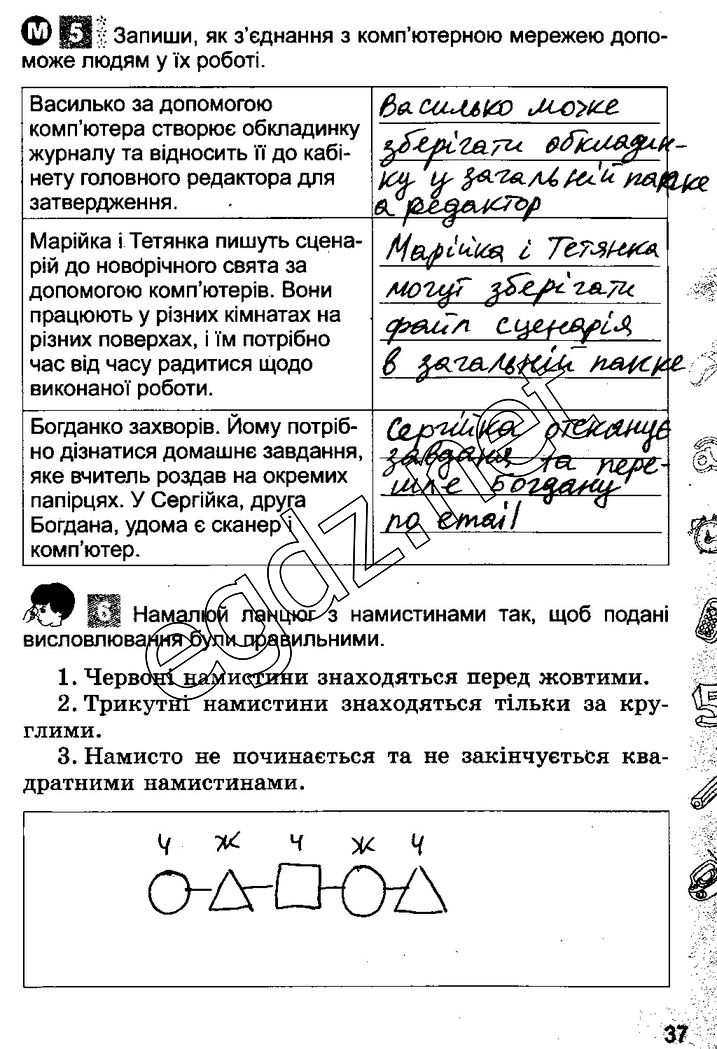 М 5 Запиши, як з'єднання з комп'ютерною мережею допо-
може людям у їх роботі.
Василько за допомогою
комп'ютера створює обкладинку
журналу та відносить її до кабі-
нету головного редактора для
затвердження.
Василько може
зберігати обкладин-
ку у загальній папке
а редактор
Марійка і Тетянка пишуть сцена-
рій до новорічного свята за
допомогою комп'ютерів. Вони
працюють у різних кімнатах на
різних поверхах, і їм потрібно
час від часу радитися щодо
виконаної роботи.
Марійка і Тетянка
могут зберігати
файл сценарія
в загальній папке
Богданко захворів. Йому потріб-
но дізнатися домашнє завдання,
яке вчитель роздав на окремих
папірцях. У Сергійка, друга
Богдана, удома є сканер і
комп'ютер.
Сергійка отсканує
завданя та пере-
шле Богдану
по email
6 Намалюй ланцюг з намистинами так, щоб подані
висловлювання були правильними.
1. Червоні намистини знаходяться перед жовтими.
2. Трикутні намистини знаходяться тільки за кру-
глими.
3. Намисто не починається та не закінчується ква-
дратними намистинами.
Ч Ж Ч Ж Ч
egdz.net
37